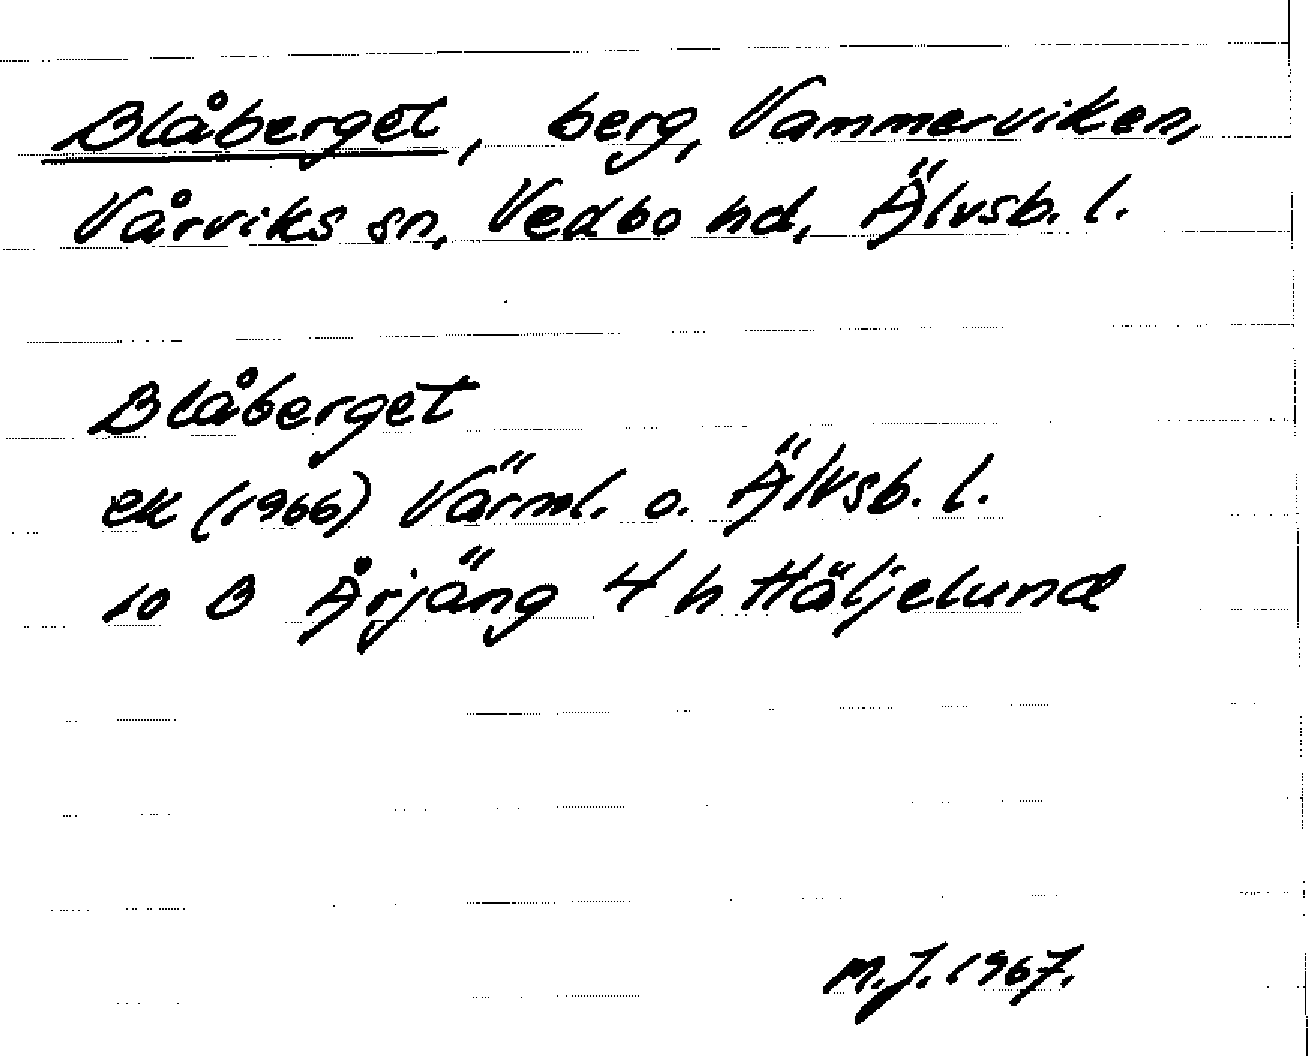 Blåberget, berg, Vammerviken,
Vårviks sn, Vedbo hd, Älvsb. l.
Blåberget
ek (1966) Värml. o. Älvsb. l.
10 B Årjäng 4 h Häljelund
M.J. 1967.